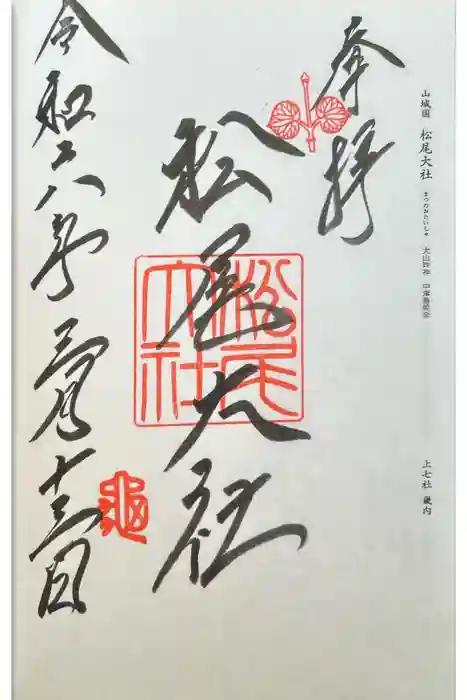 山城国 松尾大社 まつのおたいしゃ 大山咋神 中津島姫命
上七社 畿内
奉拝
松尾大社
松尾大社
令和六年三月十三日